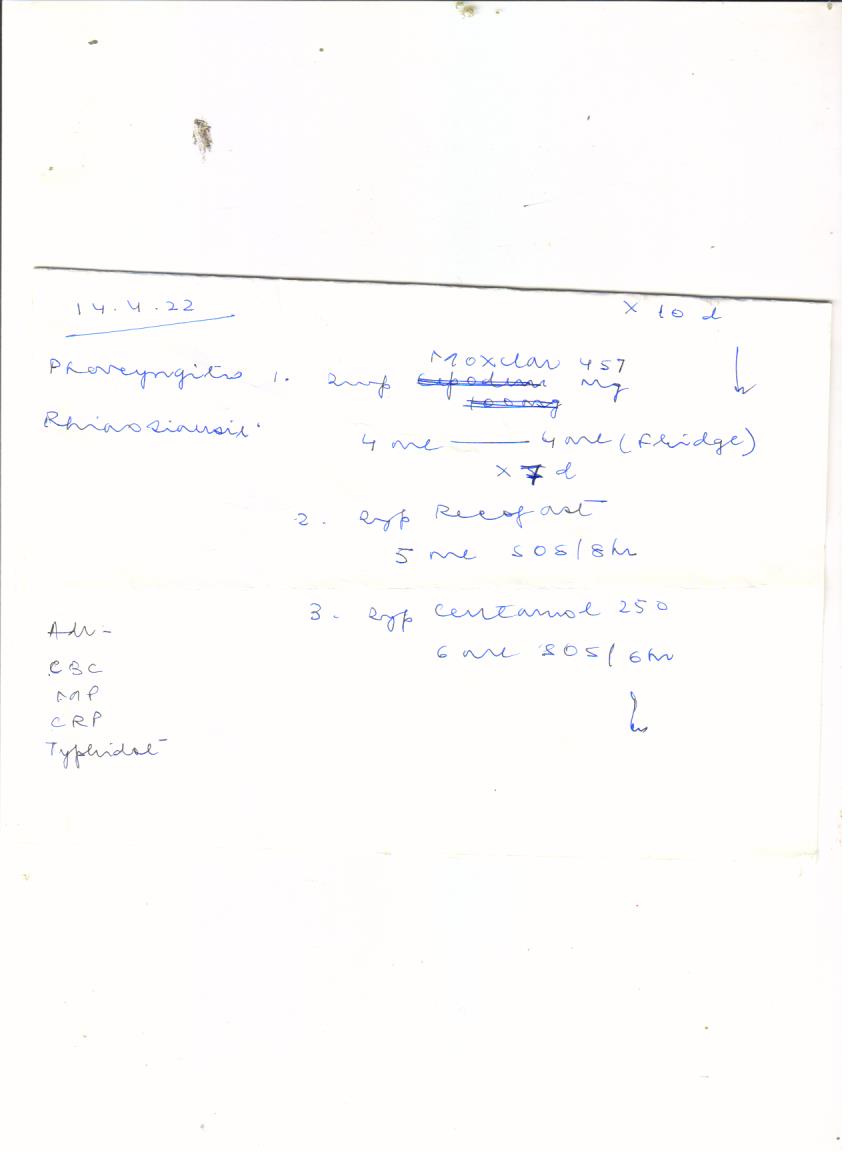 14.4.22
x 10 d
Pharyngitis 1. Syp Moxclav 457 mg
Rhinosinusit.
4 ml — 4 ml (Fridge)
x 7 d
2. Syp Recofast
5 ml SOS/8hr
3. Syp Centamol 250
6 ml SOS/6hr
Adv-
CBC
MP
CRP
Typhidot